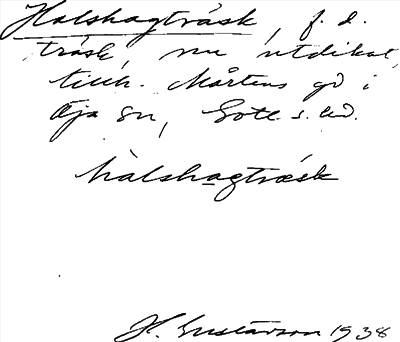 Halshagträsk, f. d.
träsk, nu utdikat,
tillh. Mårtens gd i
Öja sn, Gotl. s. hd.
hàlshagtræsk
H. Gustavson 1938